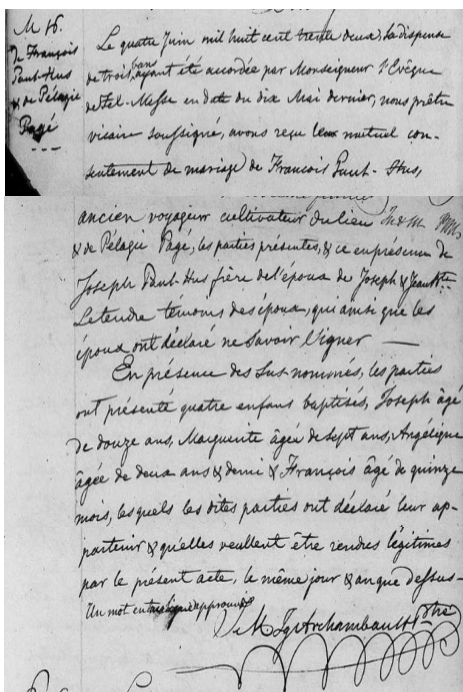 M 16.
de François
Paul-Hus
& de Pélagie
Pagé
Le quatre Juin mil huit cent trente deux, la dispense
de trois bans ayant été accordée par Monseigneur l'Evêque
de Tel-Messe en date du dix Mai dernier, nous prêtre
vicaire soussigné, avons reçu leur mutuel con-
sentement de mariage de François Paul-Hus,
ancien voyageur cultivateur du lieu
& de Pélagie Pagé, les parties présentes, & ce en présence de
Joseph Paul-Hus frère de l'époux de Joseph & Jean Bte
Letendre témoins des époux, qui ainsi que les
époux ont déclaré ne savoir signer —
En présence des sus-nommés, les parties
ont présenté quatre enfans baptisés, Joseph âgé
de douze ans, Marguerite âgée de sept ans, Angélique
âgée de deux ans & demi & François âgé de quinze
mois, lesquels les dites parties ont déclaré leur ap-
partenir & qu'elles veullent être rendres légitimes
par le présent acte, le même jour & an que dessus —
Un mot en approuvé
Archambault Ptre